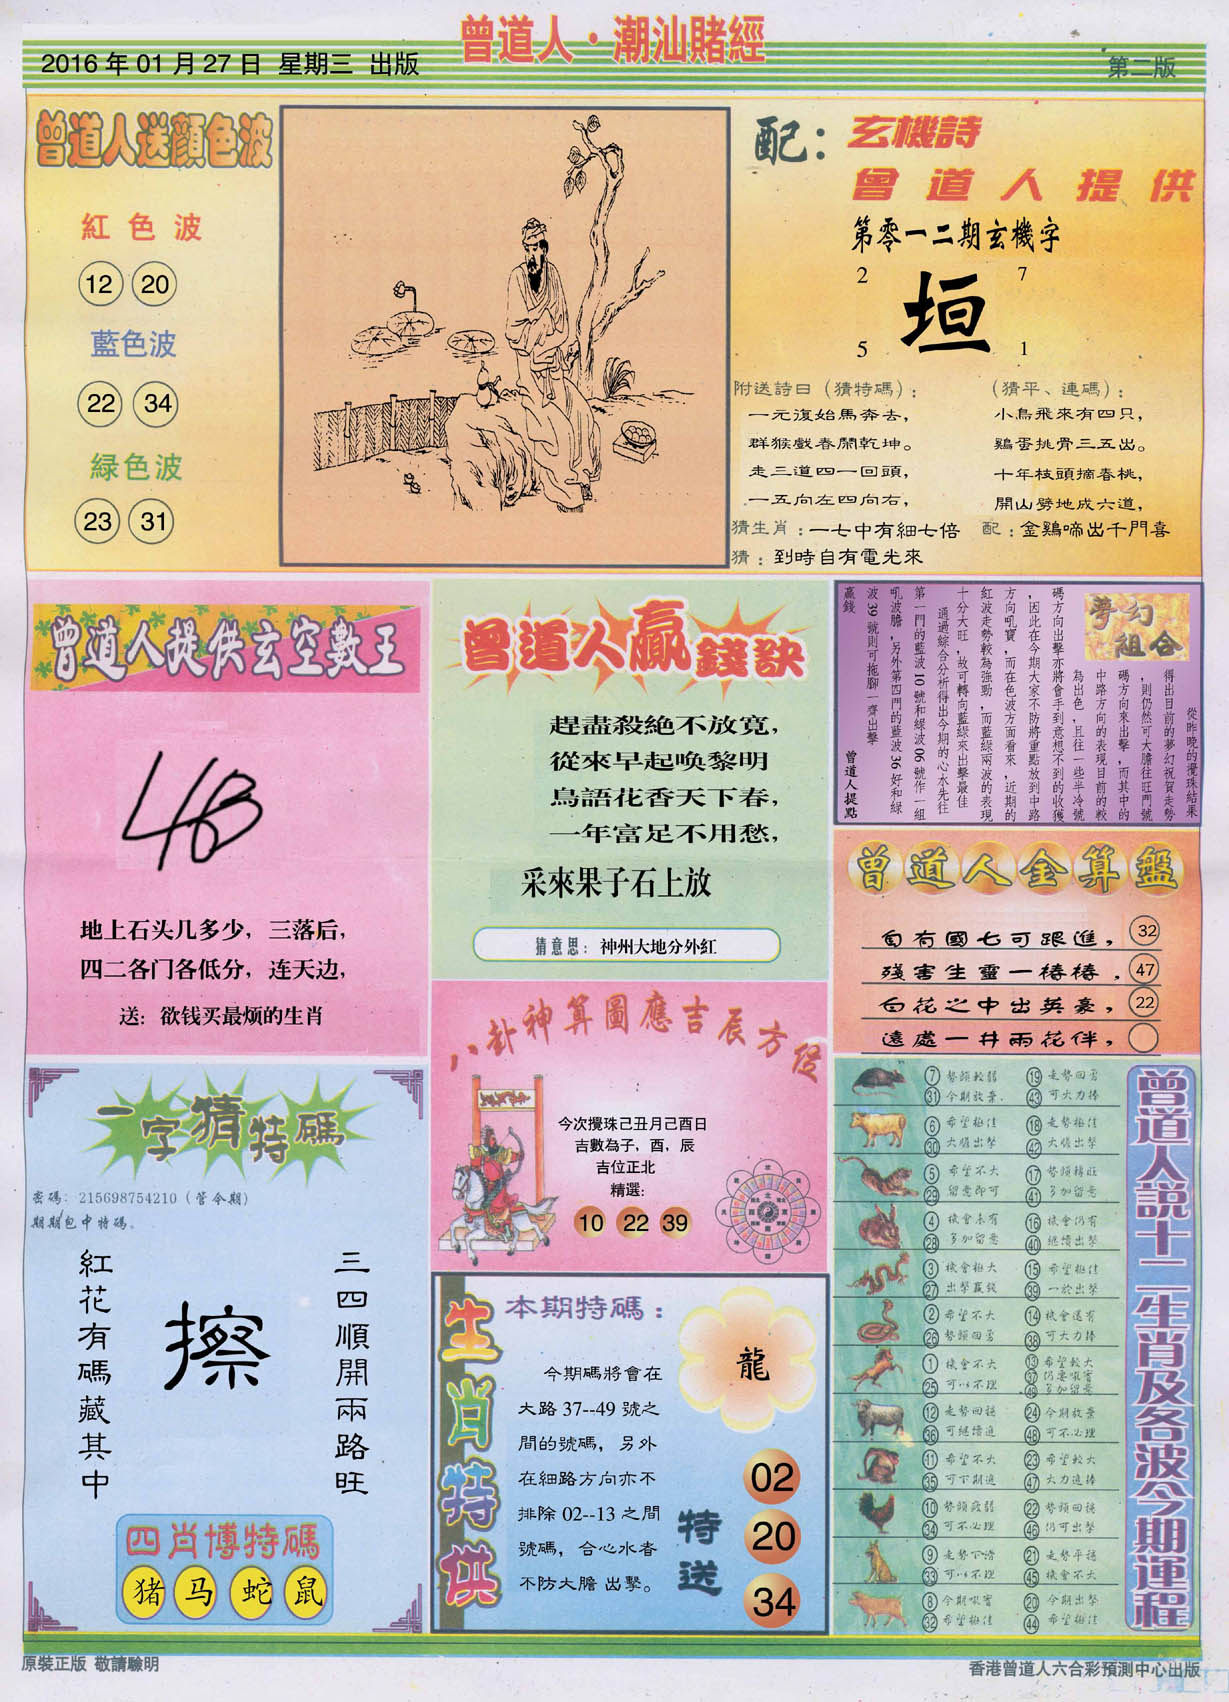 曾道人·潮汕賭經
2016 年 01 月 27 日 星期三 出版
第二版
曾道人送顔色波
紅色波
12 20
藍色波
22 34
緑色波
23 31
配：玄機詩
曾道人提供
第零一二期玄機字
2 7
垣
5 1
附送詩曰（猜特碼）：
一元復始馬奔去，
群猴戲春鬧乾坤。
走三道四一回頭，
一五向左四向右，
（猜平、連碼）：
小鳥飛來有四只，
鷄蛋挑骨三五出。
十年枝頭摘春桃，
開山劈地成六道，
猜生肖：一七中有細七倍
配：金鷄啼出千門喜
猜：到時自有電光來
曾道人提供玄空數王
地上石头几多少，三落后，
四二各门各低分，连天边，
送：欲钱买最烦的生肖
曾道人贏錢訣
趕盡殺絶不放寬，
從來早起唤黎明
鳥語花香天下春，
一年富足不用愁，
采來果子石上放
猜意思：神州大地分外紅
夢幻組合
從昨晚的攪珠結果
得出目前的夢幻祝賀走勢
，則仍然可大膽往旺門號
碼方向來出擊，而其中的
中路方向的表現目前的較
為出色，且往一些半冷號
碼方向出擊亦將會手到意想不到的收獲
，因此在今期大家不防將重點放到中路
方向吼寶，而在色波方面看來，近期的
紅波走勢較為強勁，而藍綠兩波的表現
十分大旺，故可轉向藍綠來出擊最佳
通過綜合分析得出今期的心水先往
第一門的藍波10號和綠波06號作一組
吼波膽，另外第四門的藍波36好和綠
波39號則可拖腳一齊出擊
贏錢
曾道人提點
曾道人金算盤
自有國七可跟進， 32
殘害生靈一樁樁． 47
白花之中出英豪， 22
遠處一井兩花伴，
八卦神算圖應吉辰方位
今次攪珠己丑月己酉日
吉數為子，酉，辰
吉位正北
精選：
10 22 39
一字猜特碼
密碼：215698754210（管今期）
期期包中特碼。
三四順開兩路旺
擦
紅花有碼藏其中
四肖博特碼
猪 马 蛇 鼠
生肖特供
本期特碼：
龍
今期碼將會在
大路 37--49 號之
間的號碼，另外
在細路方向亦不
排除 02--13 之間
號碼，合心水者
不防大膽 出擊。
特送
02
20
34
曾道人說十二生肖及各波今期運程
7 勢頭較弱 19 走勢回勇
31 今期放棄． 43 可大力捧
6 希望極佳 18 走勢極佳
30 大膽出擊 42 大膽出擊
5 希望不大 17 勢頭轉旺
29 留意即可 41 多加留意
4 機會未有 16 機會仍有
28 多加留意 40 繼續出擊
3 機會極大 15 希望極佳
27 出擊贏錢 39 一於出擊
2 希望不大 14 機會還有
26 勢頭回勇 38 可大力捧
1 機會不大 13 希望較大
25 可以不理 37 仍要吼實
49 多加留意
12 走勢回穩 24 今期放棄
36 可繼續追 48 可不必理
11 希望不大 23 希望較大
35 可下期追 47 大力追捧
10 勢頭疲弱 22 勢頭回穩
34 可不必理 46 仍可出擊
9 走勢下滑 21 走勢平穩
33 可以不理 45 機會不大
8 今期吼實 20 今期出擊
32 希望極佳 44 希望極佳
原裝正版 敬請驗明
香港曾道人六合彩預測中心出版